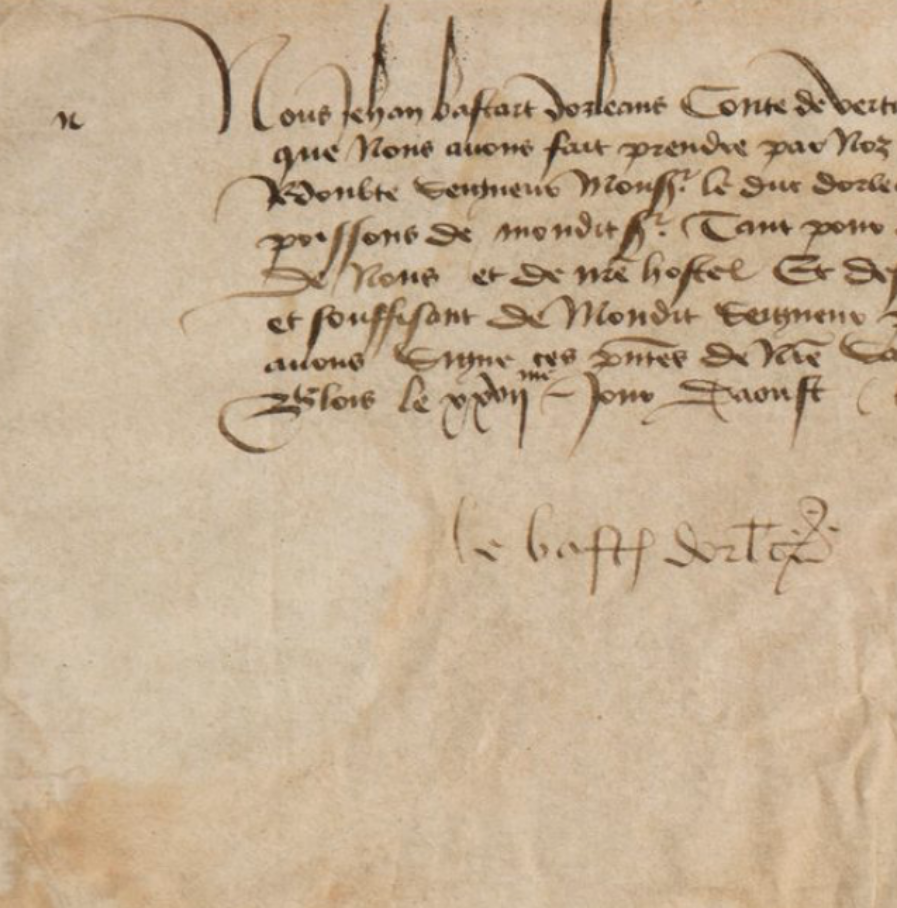 n
Nous Jehan bastart dorleans Conte de vert
que Nous avons fait prendre par Noz
Redoubte Seigneur Monsr. le duc dorle
poissons de mondit sr. Tant pour
de Nous et de nre hostel Et de
et souffisant de Mondit Seigneur
avons Signe ces pntes de Nre
Blois le xxviime Jour Daoust
le bast dorle